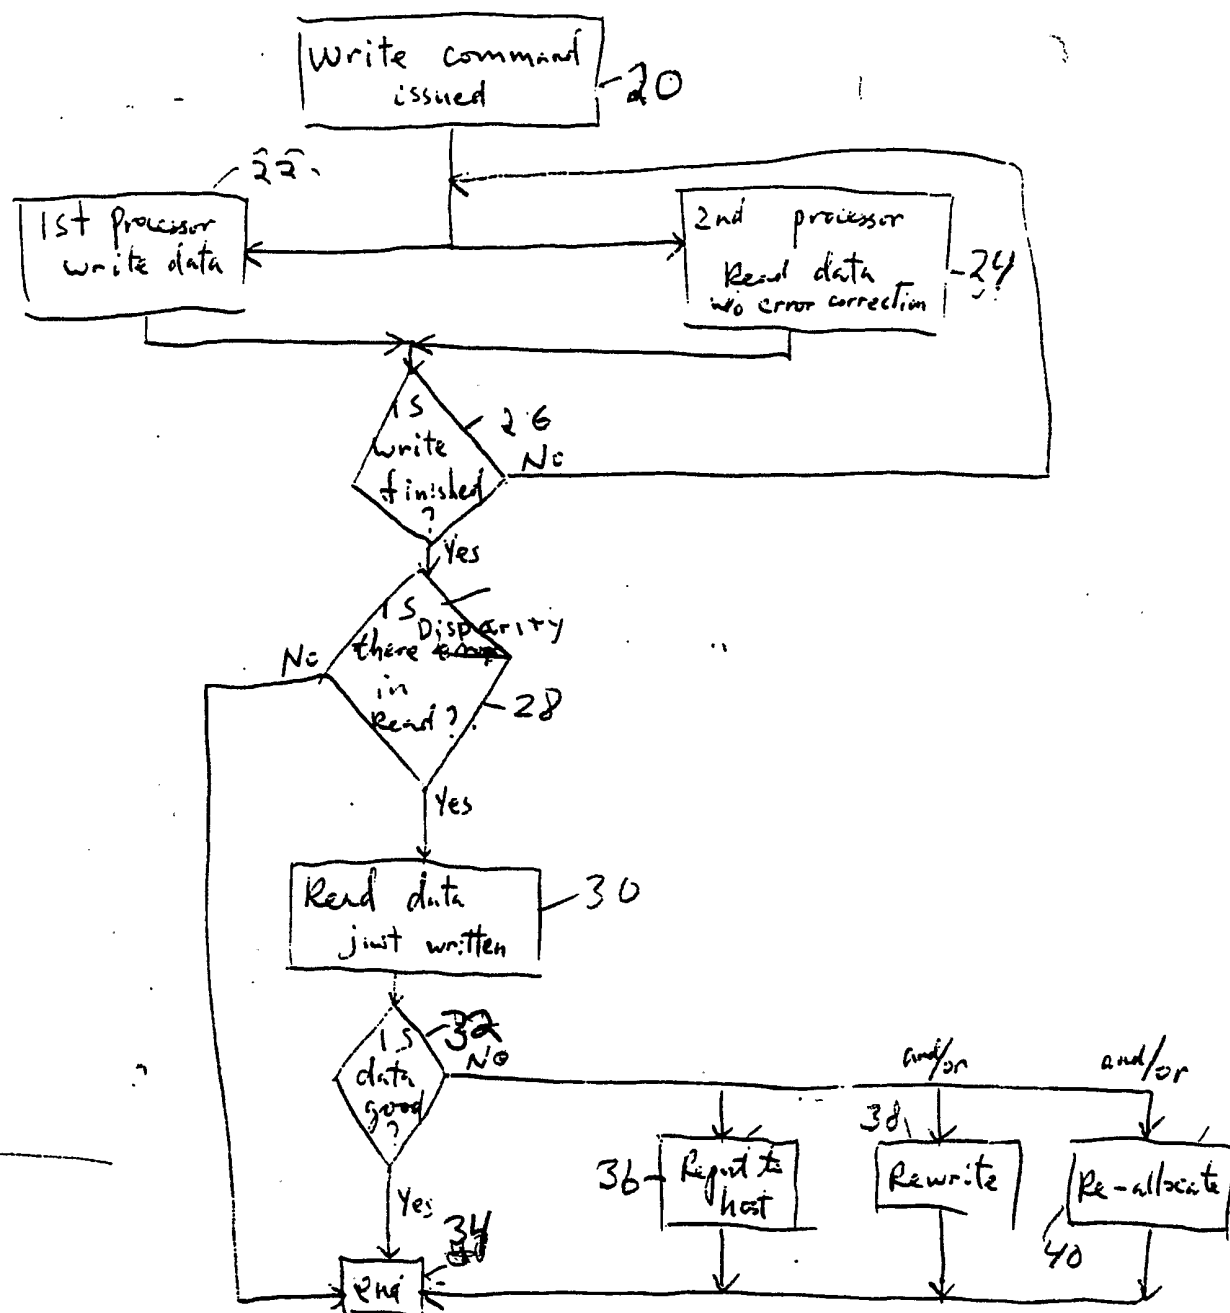 Write command
issued
20
22
1st processor
write data
2nd processor
Read data
w/o error correction
24
is
write
finished
?
26
No
Yes
is
Disparity
there
in
Read?
28
No
Yes
Read data
just written
30
is
data
good
?
32
No
Yes
and/or
and/or
36
Report to
host
38
Rewrite
Re-allocate
40
34
end